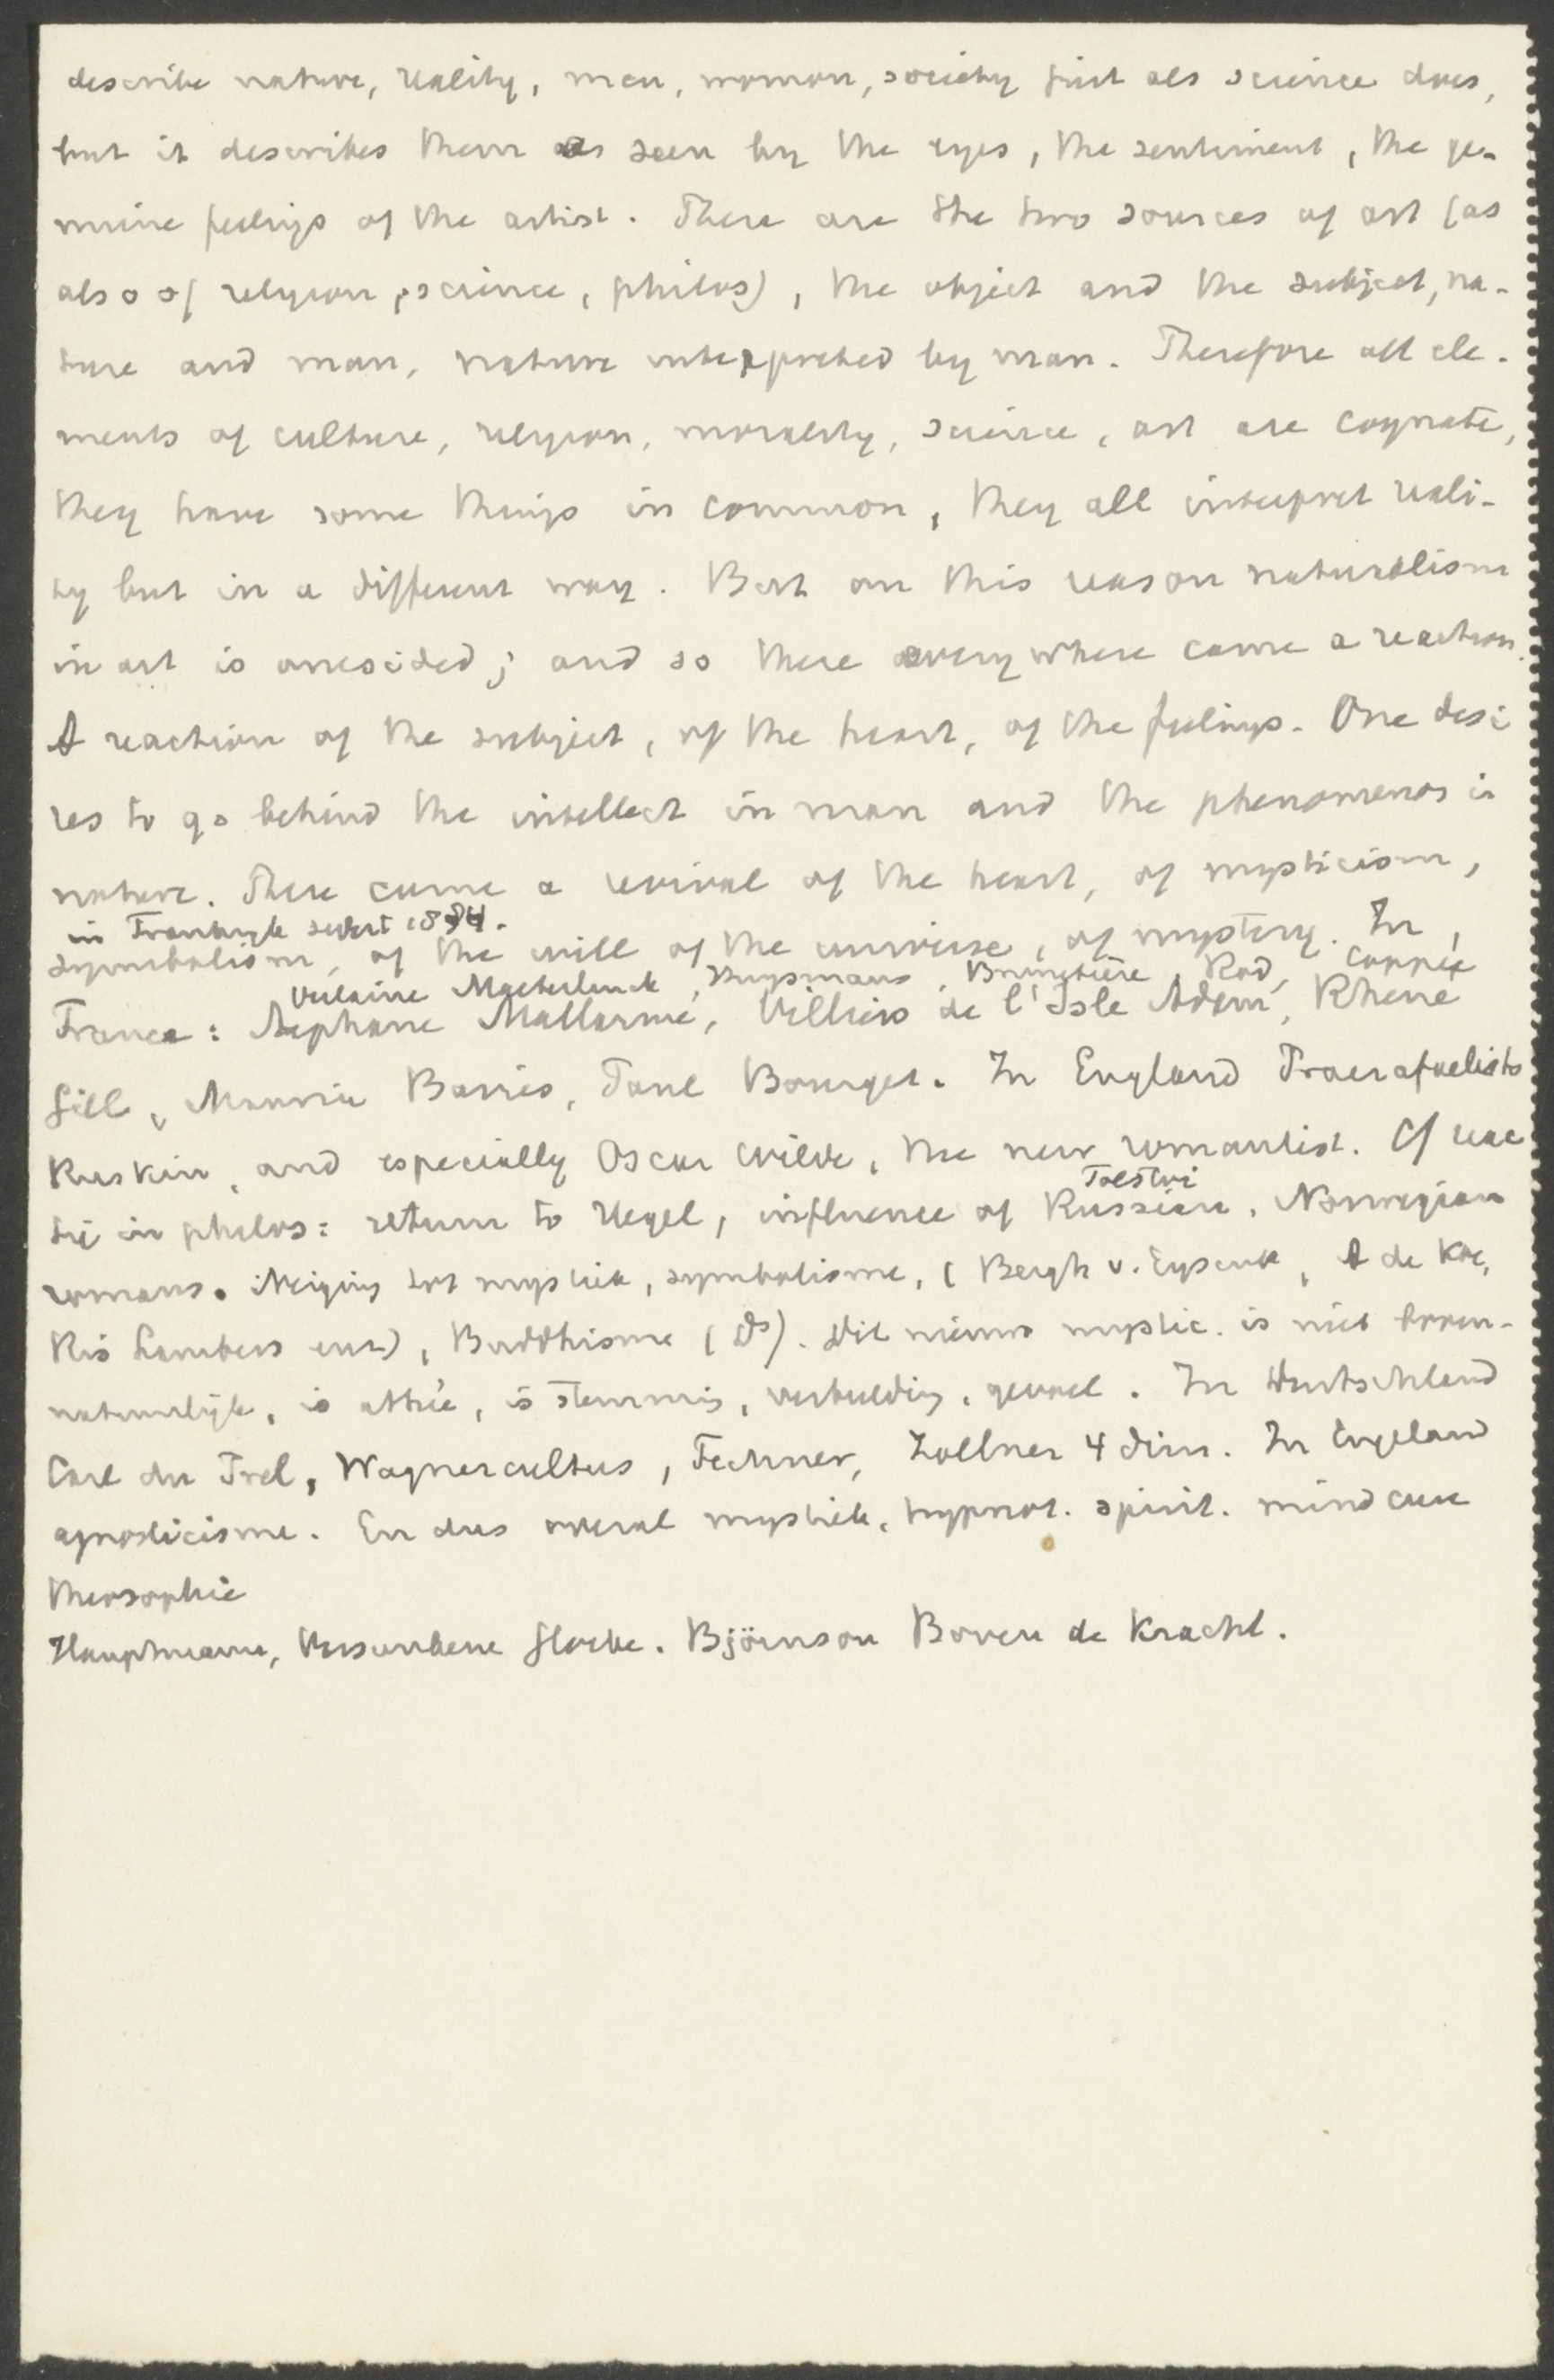 describe nature, reality, men, woman, society just als science does,
but it describes them as seen by the eyes, the sentiment, the ge-
nuine feelings of the artist. There are the two sources of art (as
also of religion, science, philos), the object and the subject, na-
ture and man, nature interpreted by man. Therefore all ele-
ments of culture, religion, morality, science, art are cognate,
they have some things in common, they all interpret reali-
ty but in a different way. But on this reason naturalism
in art is onesided; and so there everywhere came a reaction.
A reaction of the subject, of the heart, of the feelings. One desi
res to go behind the intellect in man and the phenomenos in
nature. There came a revival of the heart, of mysticism,
in Frankrijk sedert 1884.
symbolism, of the will of the universe, of mystery. In
Verlaine Maeterlinck, Huysmans, Brunetière, Rod, Coppée,
France: Stephane Mallarmé, Villiers de l'Isle Adam, Rhene
Gill, Maurice Barrès, Paul Bourget. In England Praerafaelists
Ruskin, and especially Oscar Wilde, the new romantist. Cf reac
Tolstoi
tie in philos: return to Hegel, influence of Russian, Norwegian
romans. Neiging tot mystiek, symbolisme, (Bergh v. Eysinga, A de Koe,
Ris Lambers enz), Buddhisme (Ds). Dit nieuwe mystic. is niet boven-
natuurlijk, is athée, is stemming, verbeelding, gevoel. In Deutschland
Carl du Prel, Wagnercultus, Fechner, Zollner 4 dim. In Engeland
agnosticisme. En dus overal mystiek, hypnot. spirit. mind cure
theosophie
Hauptmann, Versunkene Glocke. Björnson Boven de Kracht.